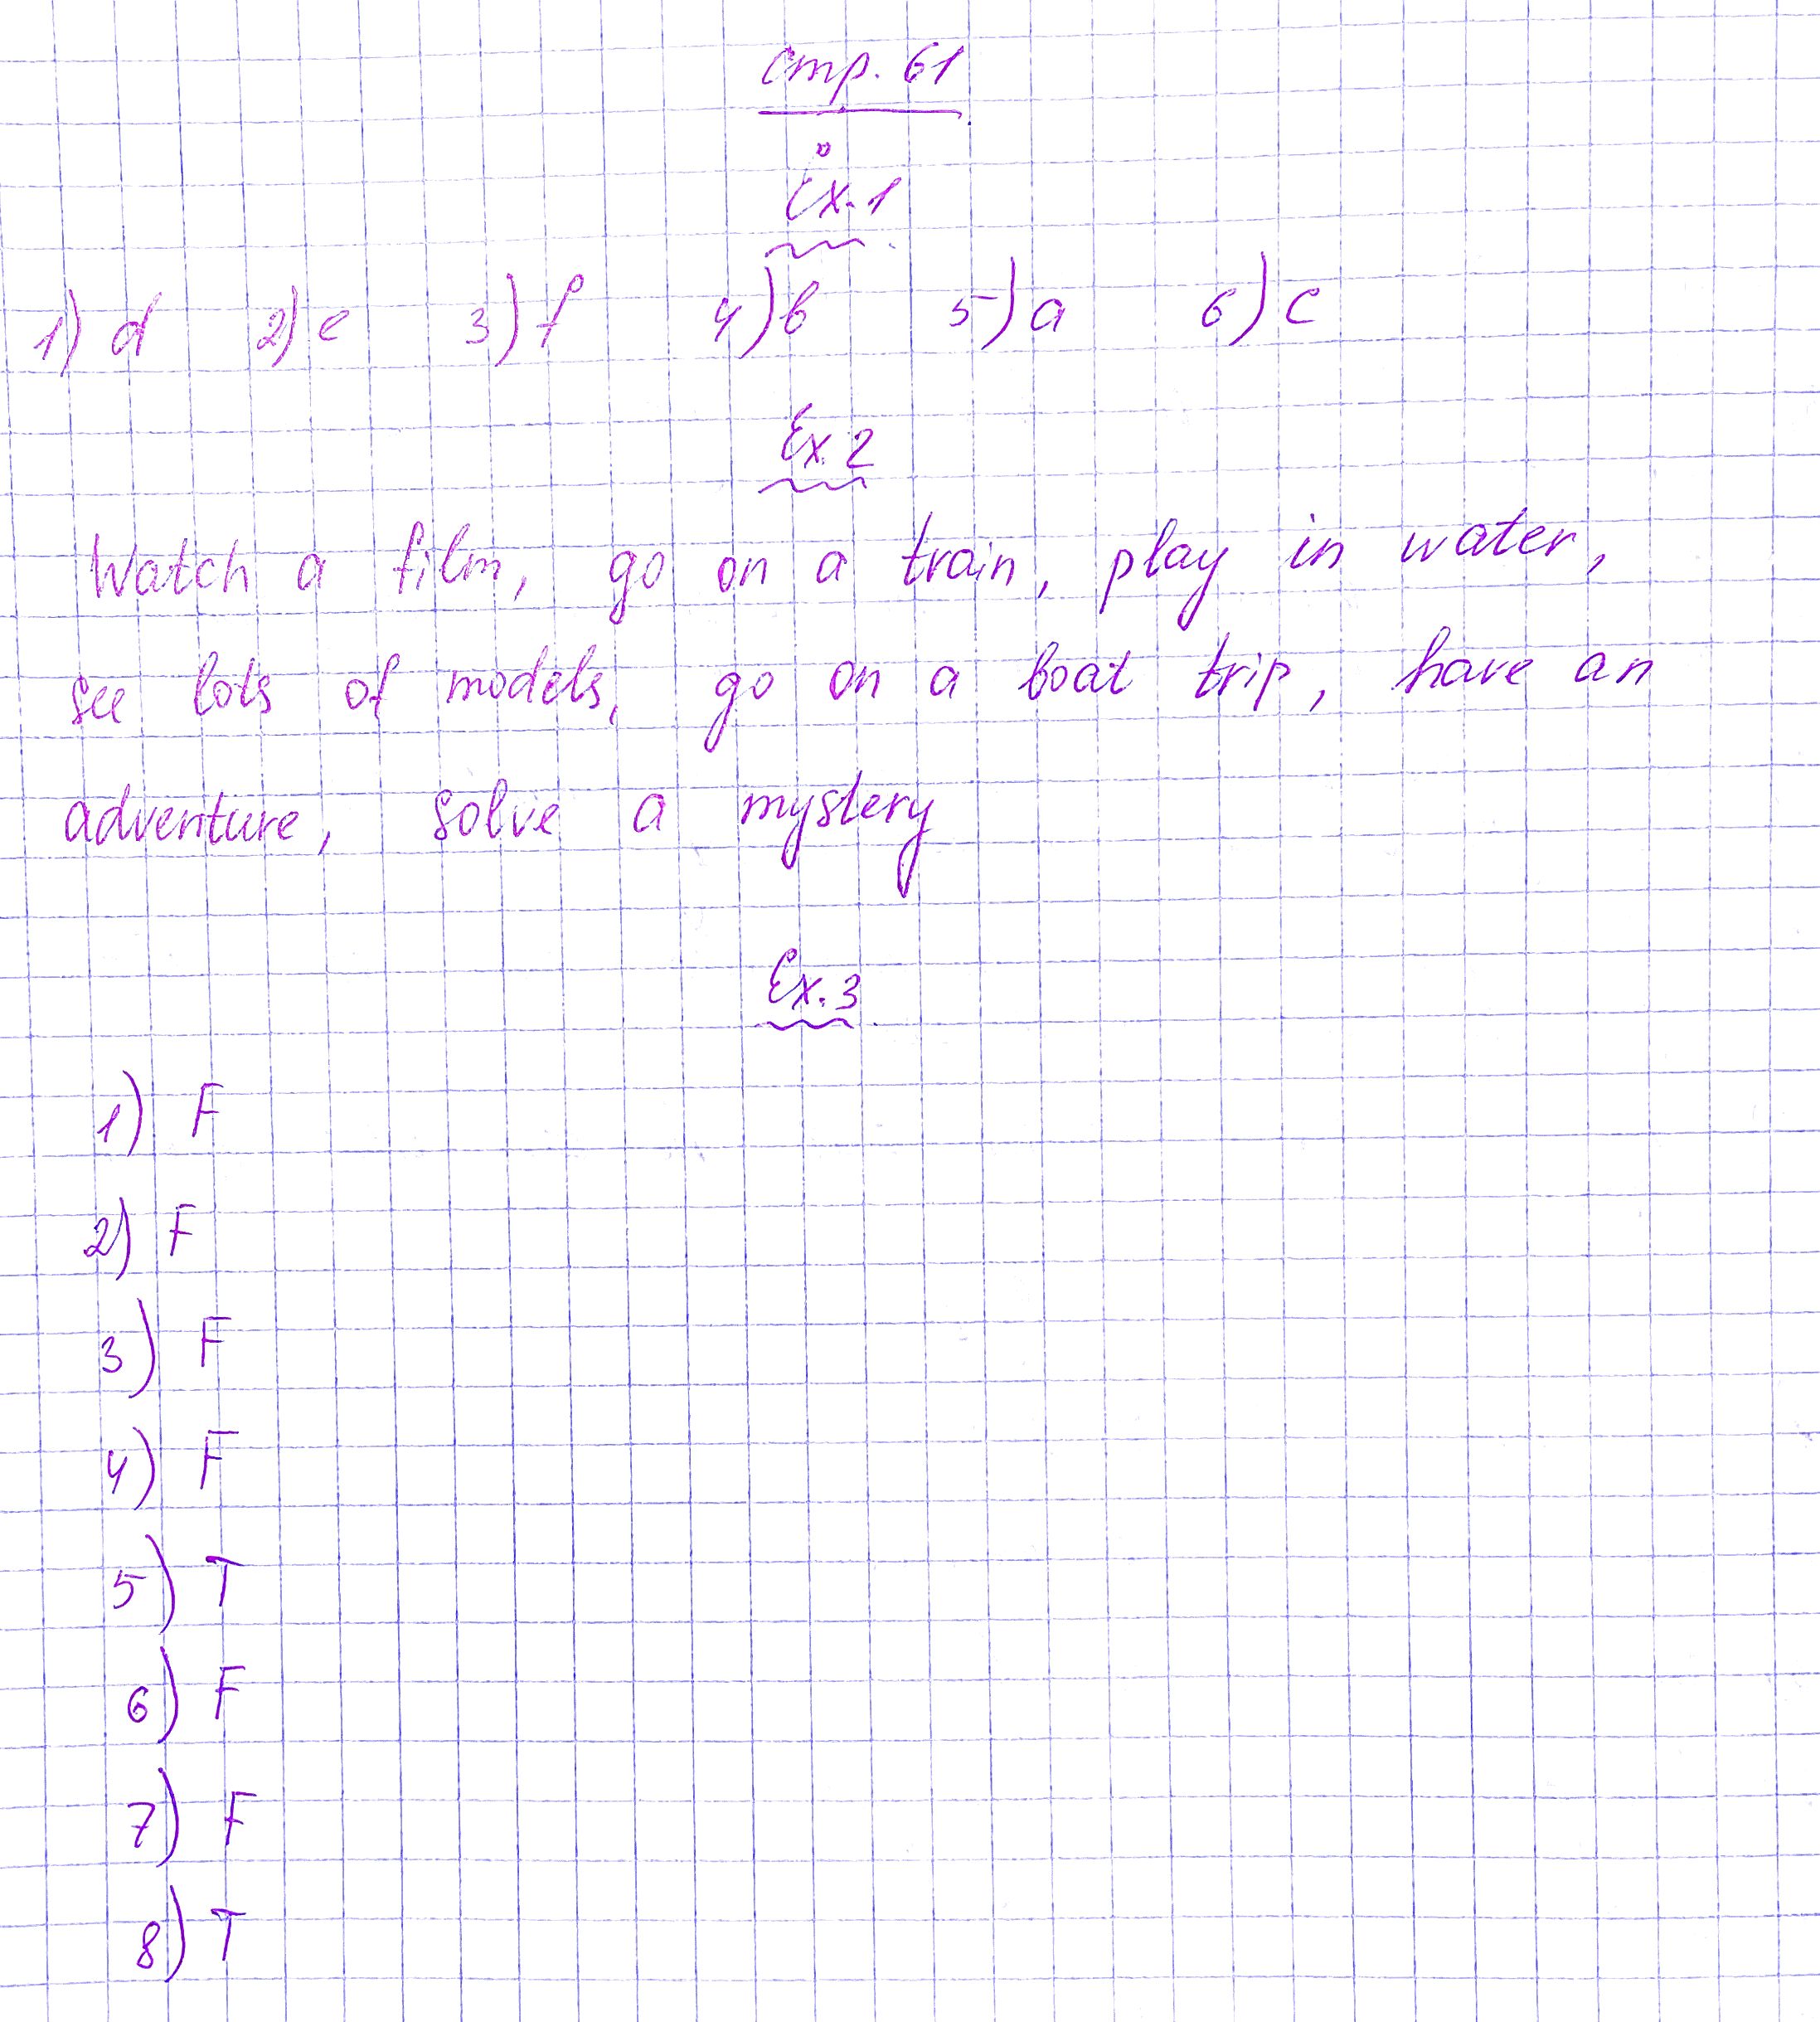 стр. 61
Ex. 1
1) d 2) e 3) f 4) b 5) a 6) c
Ex. 2
Watch a film, go on a train, play in water,
see lots of models, go on a boat trip, have an
adventure, solve a mystery
Ex. 3
1) F
2) F
3) F
4) F
5) T
6) F
7) F
8) T